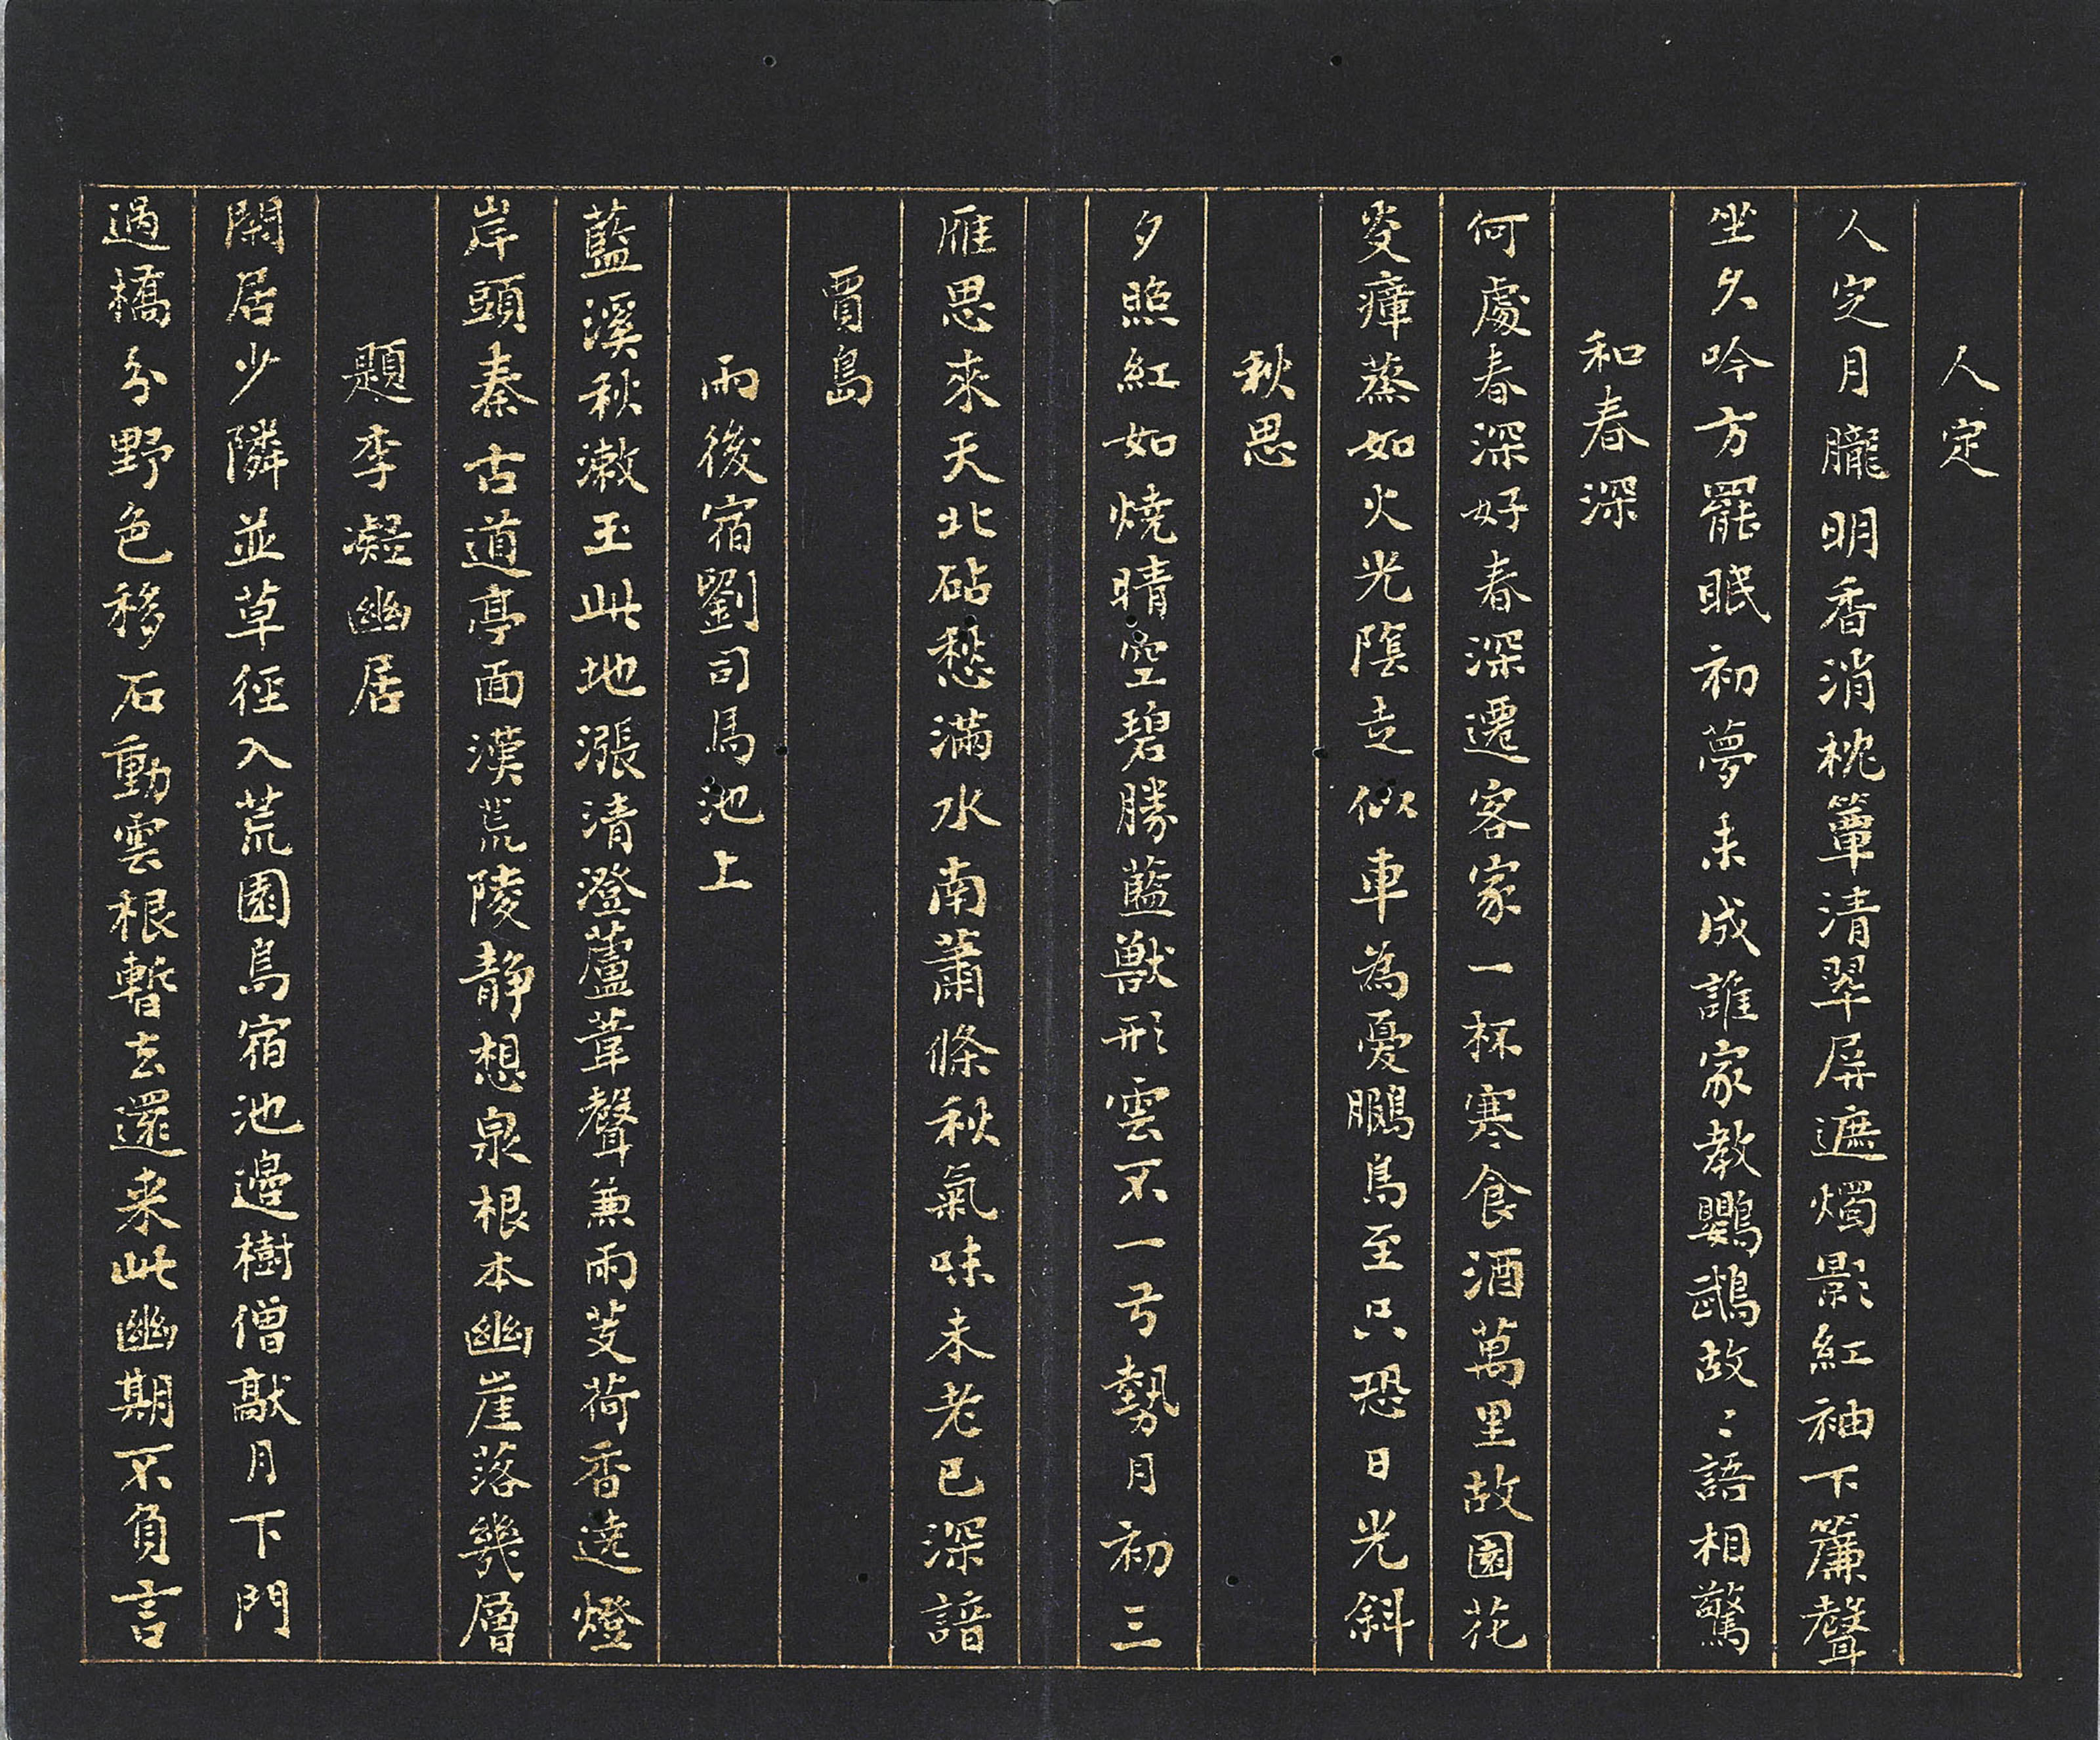 人定
人定月朧明香消枕簟清翠屏遮燭影紅袖下簾聲
坐久吟方罷眠初夢未成誰家教鸚鵡故〻語相驚
和春深
何處春深好春深遷客家一杯寒食酒萬里故園花
炎瘴蒸如火光陰走似車為憂鵬鳥至只恐日光斜
秋思
夕照紅如燒晴空碧勝藍獸形雲不一弓勢月初三
雁思來天北砧愁滿水南蕭條秋氣味未老已深諳
賈島
雨後宿劉司馬池上
藍溪秋漱玉此地漲清澄蘆葦聲兼雨芰荷香遶燈
岸頭秦古道亭面漢荒陵靜想泉根本幽崖落幾層
題李凝幽居
閑居少隣並草徑入荒園鳥宿池邊樹僧敲月下門
過橋分野色移石動雲根暫去還来此幽期不負言